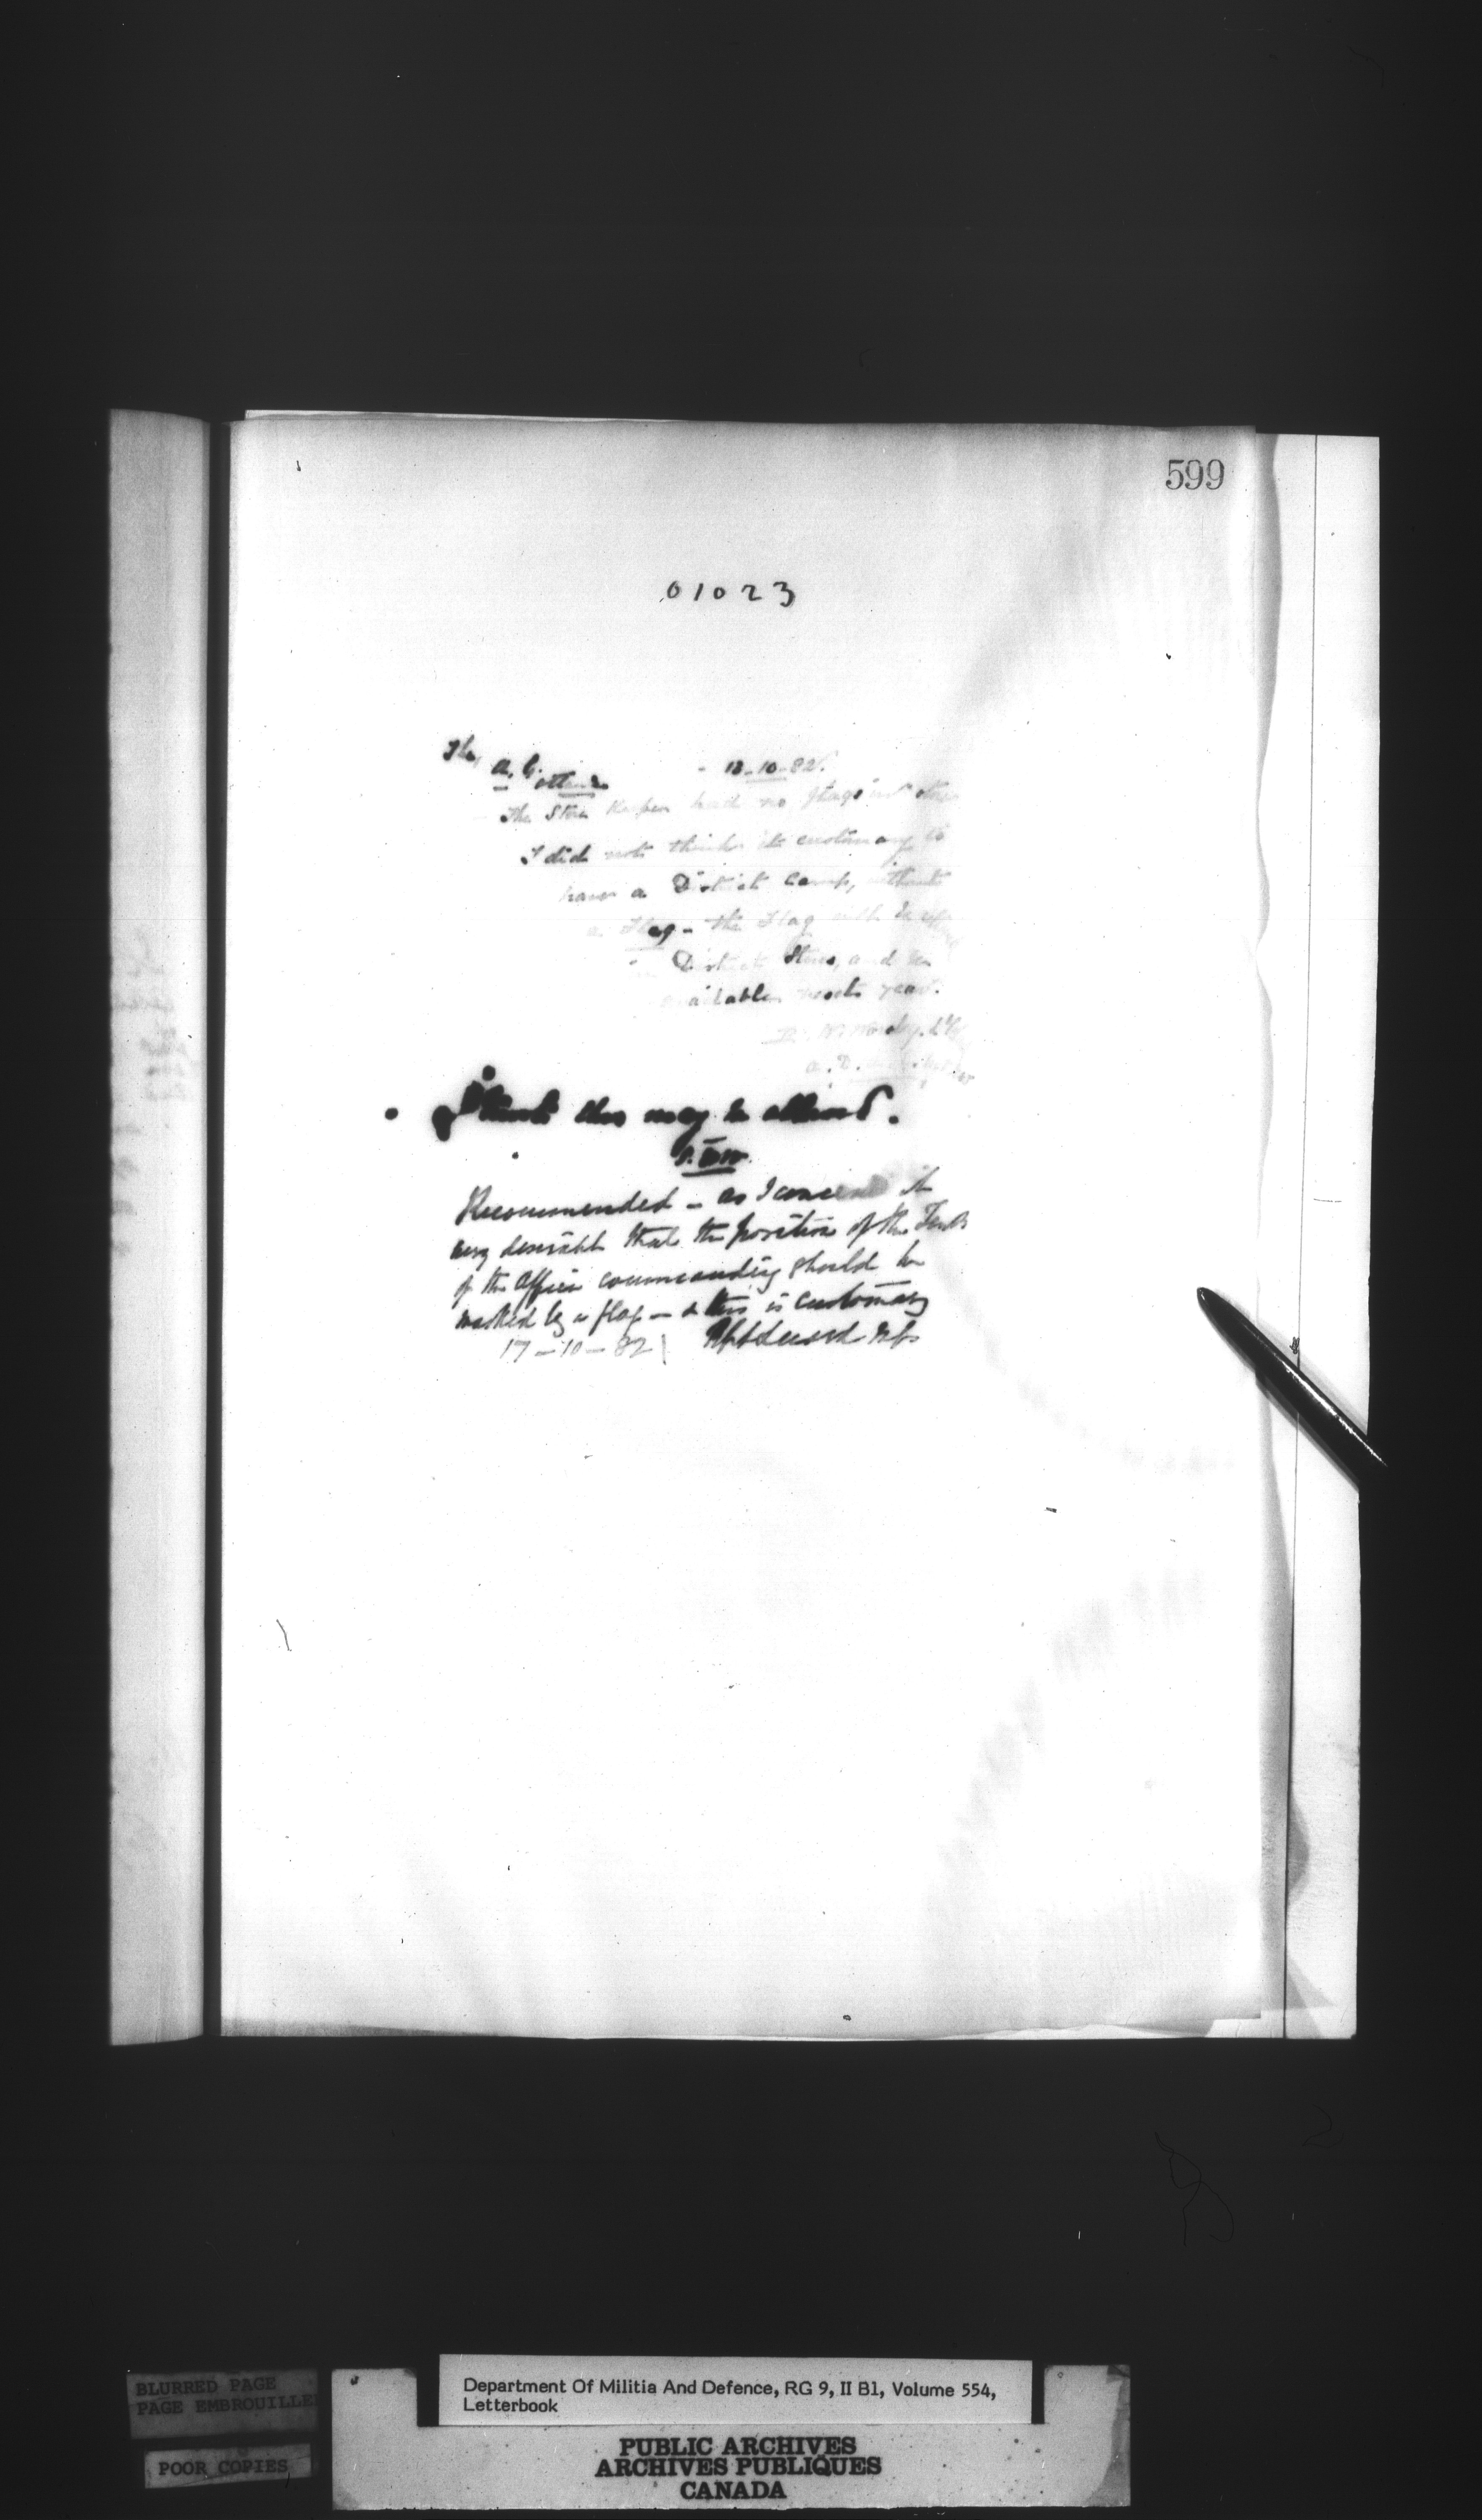 599
01023
The A.G. Ottawa - 13-10-82.
The Store Keeper had no flags in store
I did not think it customary to
have a District Camp, without
a Flag - the Flag will be
in District Stores, and be
available next year.
A.D.
I think this may be allowed.
Recommended - as I conceive it
very desirable that the position of the Tents
of the Officer commanding should be
marked by a flag - & this is customary
17-10-82
BLURRED PAGE
PAGE EMBROUILLE
POOR COPIES
Department Of Militia And Defence, RG 9, II B1, Volume 554,
Letterbook
PUBLIC ARCHIVES
ARCHIVES PUBLIQUES
CANADA